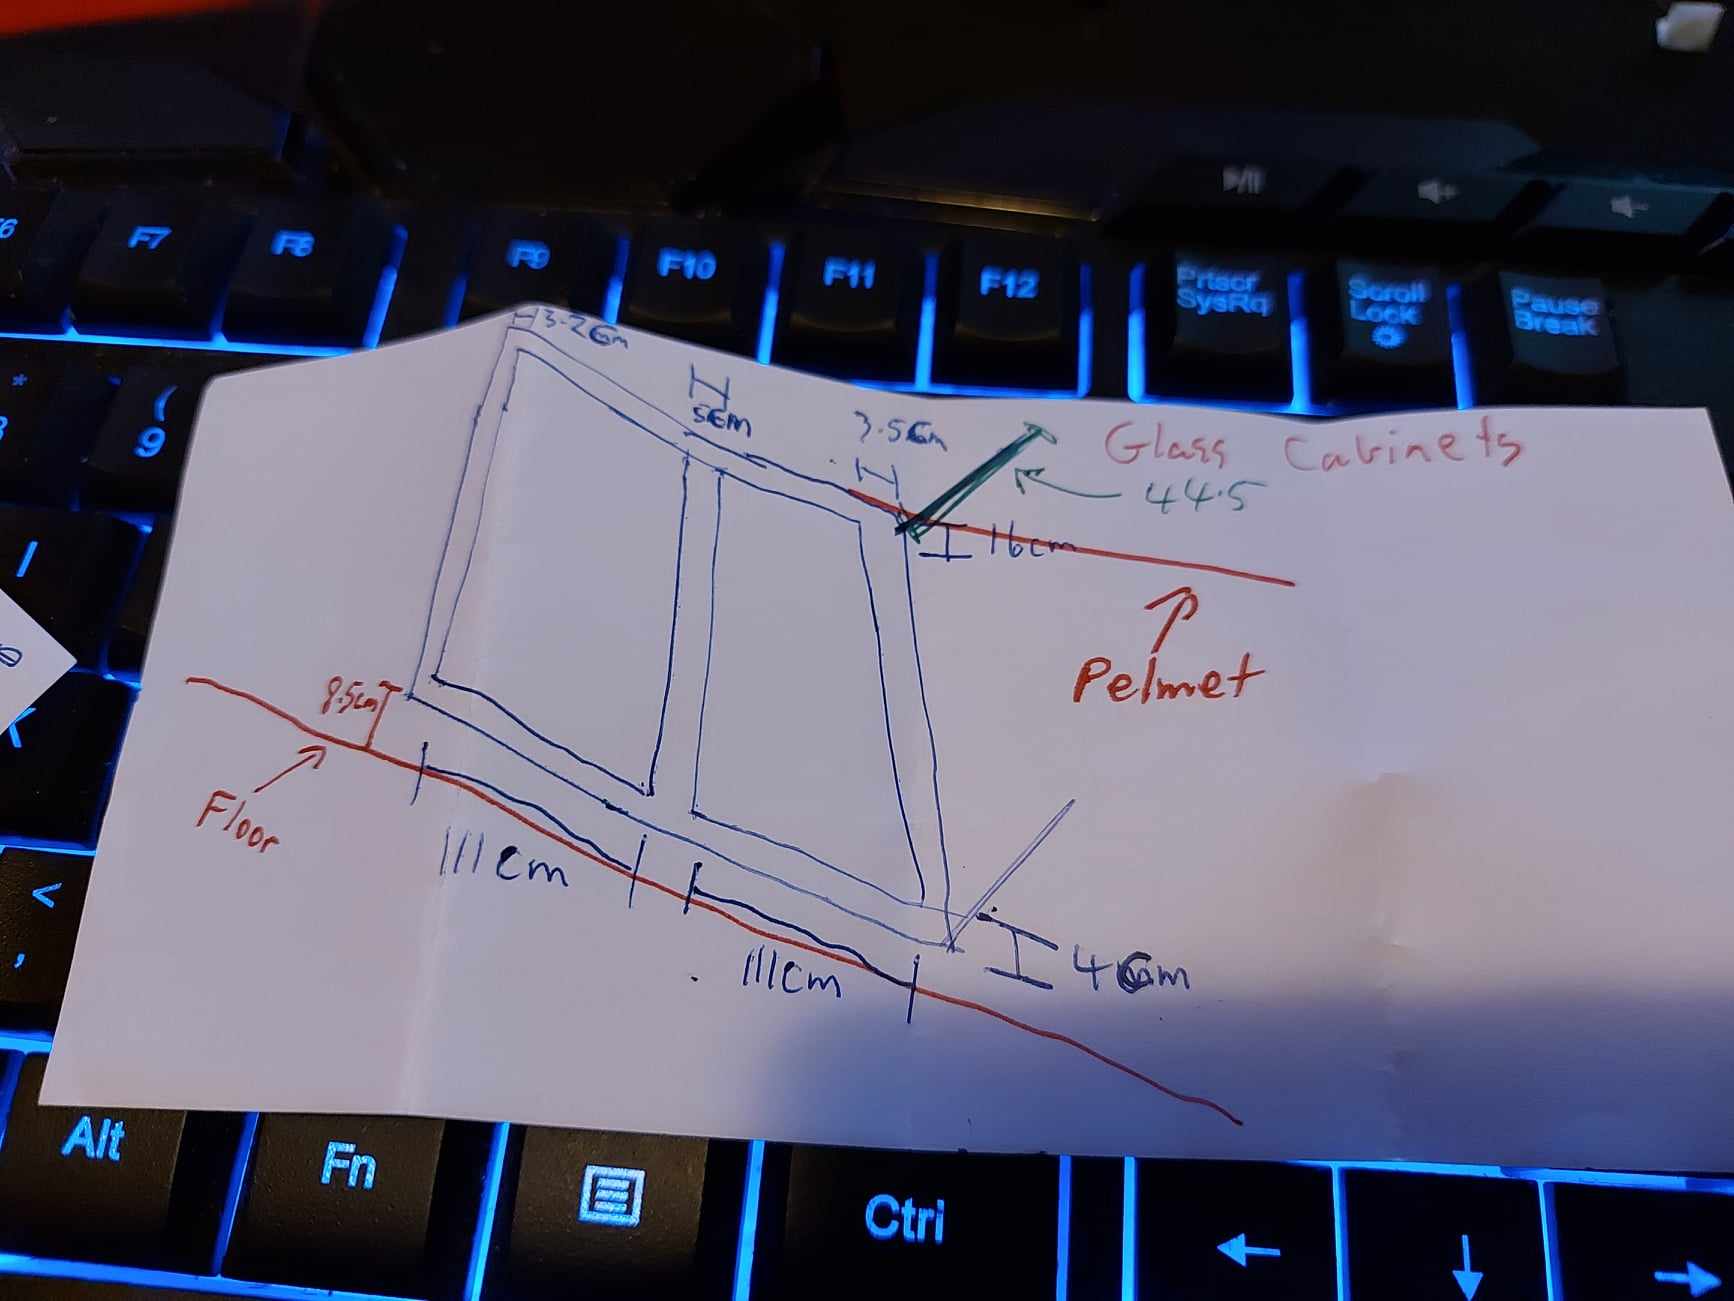 F7
F8
F9
F10
F11
F12
Prtscr
SysRq
Scroll
Lock
Pause
Break
(
9
*
/
<
,
3.2cm
5cm
3.5cm
Glass Cabinets
44.5
16cm
Pelmet
8.5cm
Floor
111cm
111cm
4cm
Alt
Fn
Ctrl